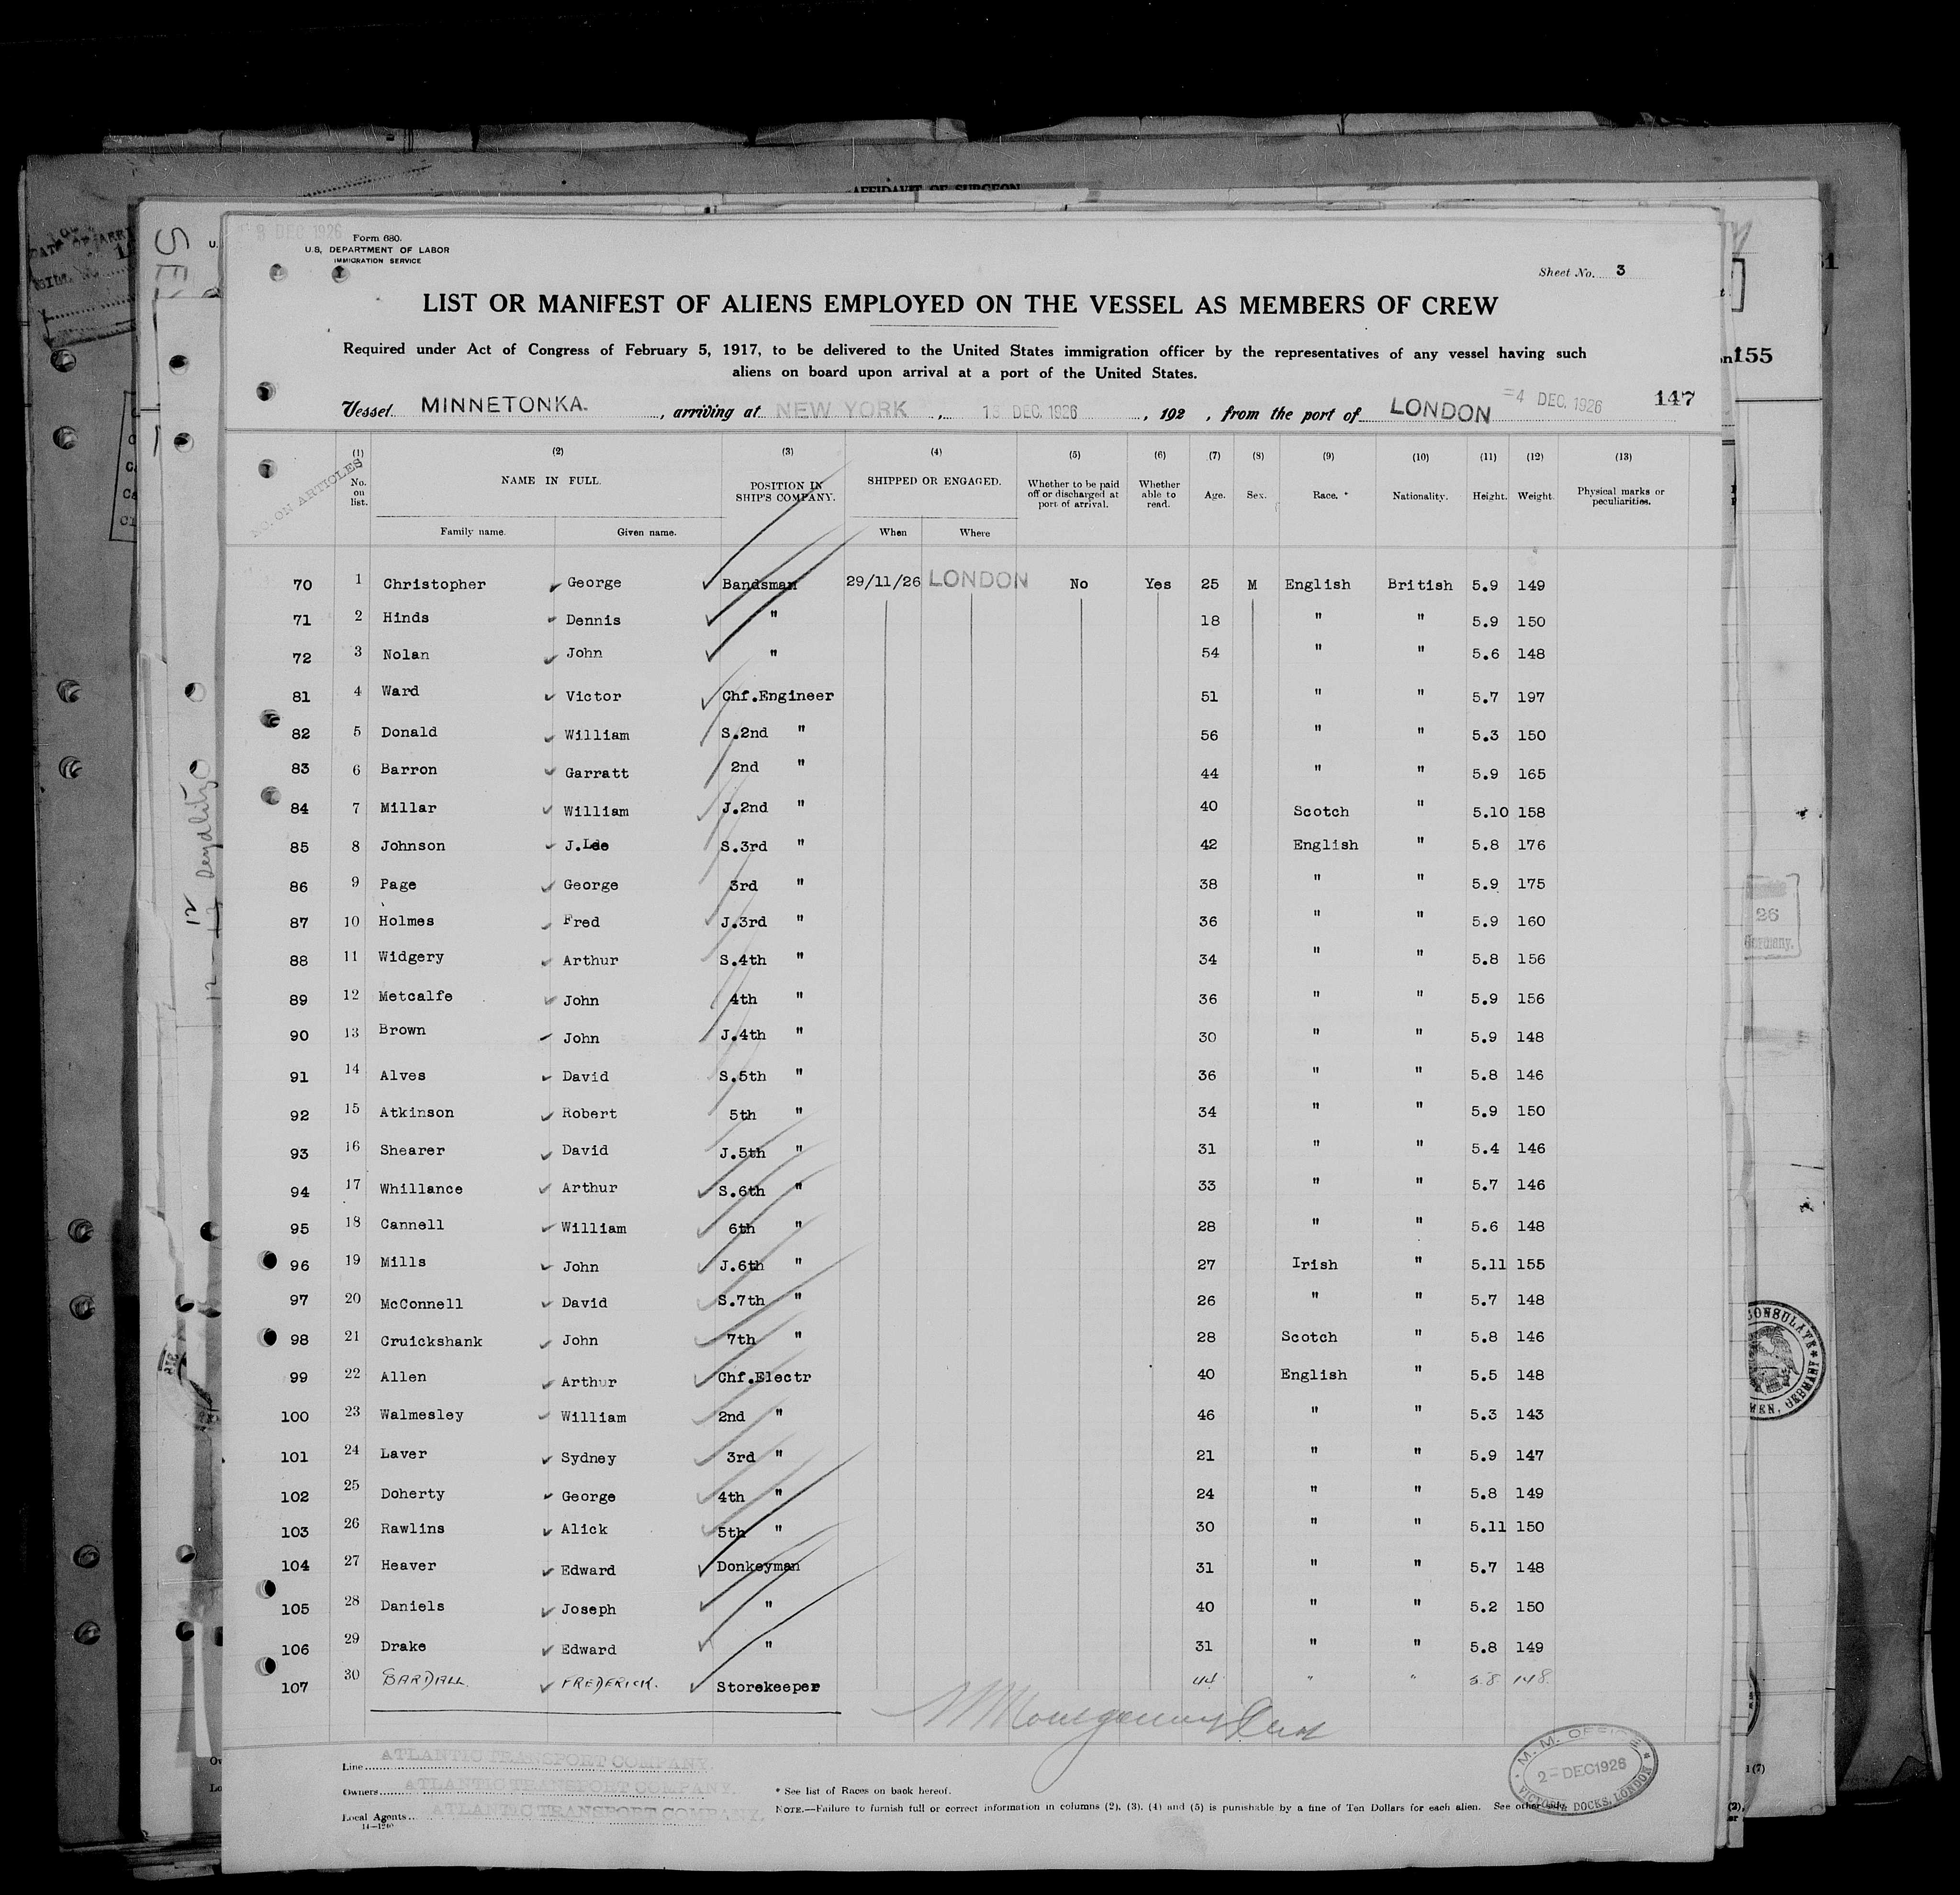 AFFIDAVIT OF SURGEON
3 DEC 1926
Form 680.
U.S. DEPARTMENT OF LABOR
IMMIGRATION SERVICE
Sheet No. 3
LIST OR MANIFEST OF ALIENS EMPLOYED ON THE VESSEL AS MEMBERS OF CREW
Required under Act of Congress of February 5, 1917, to be delivered to the United States immigration officer by the representatives of any vessel having such
aliens on board upon arrival at a port of the United States.
155
Vessel MINNETONKA. , arriving at NEW YORK , 13 DEC. 1926 , 192 , from the port of LONDON =4 DEC. 1926 147
NO. ON ARTICLES
(1) (2) (3) (4) (5) (6) (7) (8) (9) (10) (11) (12) (13)
No. on list. NAME IN FULL. POSITION IN SHIP'S COMPANY. SHIPPED OR ENGAGED. Whether to be paid off or discharged at port of arrival. Whether able to read. Age. Sex. Race. * Nationality. Height. Weight. Physical marks or peculiarities.
Family name. Given name. When Where
70 1 Christopher George Bandsman 29/11/26 LONDON No Yes 25 M English British 5.9 149
71 2 Hinds Dennis " 18 " " 5.9 150
72 3 Nolan John " 54 " " 5.6 148
81 4 Ward Victor Chf.Engineer 51 " " 5.7 197
82 5 Donald William S.2nd " 56 " " 5.3 150
83 6 Barron Garratt 2nd " 44 " " 5.9 165
84 7 Millar William J.2nd " 40 Scotch " 5.10 158
85 8 Johnson J.Lee S.3rd " 42 English " 5.8 176
86 9 Page George 3rd " 38 " " 5.9 175
87 10 Holmes Fred J.3rd " 36 " " 5.9 160
88 11 Widgery Arthur S.4th " 34 " " 5.8 156
89 12 Metcalfe John 4th " 36 " " 5.9 156
90 13 Brown John J.4th " 30 " " 5.9 148
91 14 Alves David S.5th " 36 " " 5.8 146
92 15 Atkinson Robert 5th " 34 " " 5.9 150
93 16 Shearer David J.5th " 31 " " 5.4 146
94 17 Whillance Arthur S.6th " 33 " " 5.7 146
95 18 Cannell William 6th " 28 " " 5.6 148
96 19 Mills John J.6th " 27 Irish " 5.11 155
97 20 McConnell David S.7th " 26 " " 5.7 148
98 21 Cruickshank John 7th " 28 Scotch " 5.8 146
99 22 Allen Arthur Chf.Electr 40 English " 5.5 148
100 23 Walmesley William 2nd " 46 " " 5.3 143
101 24 Laver Sydney 3rd " 21 " " 5.9 147
102 25 Doherty George 4th " 24 " " 5.8 149
103 26 Rawlins Alick 5th " 30 " " 5.11 150
104 27 Heaver Edward Donkeyman 31 " " 5.7 148
105 28 Daniels Joseph " 40 " " 5.2 150
106 29 Drake Edward " 31 " " 5.8 149
107 30 BARDALL. FREDERICK. Storekeeper 44 " " 5.8 148
Line ATLANTIC TRANSPORT COMPANY.
Owners ATLANTIC TRANSPORT COMPANY.
Local Agents ATLANTIC TRANSPORT COMPANY.
14—1240
* See list of Races on back hereof.
NOTE.—Failure to furnish full or correct information in columns (2), (3), (4) and (5) is punishable by a fine of Ten Dollars for each alien. See other side.
M. M. OFFICE
2=DEC1926
VICTORIA DOCKS, LONDON
26
Germany.